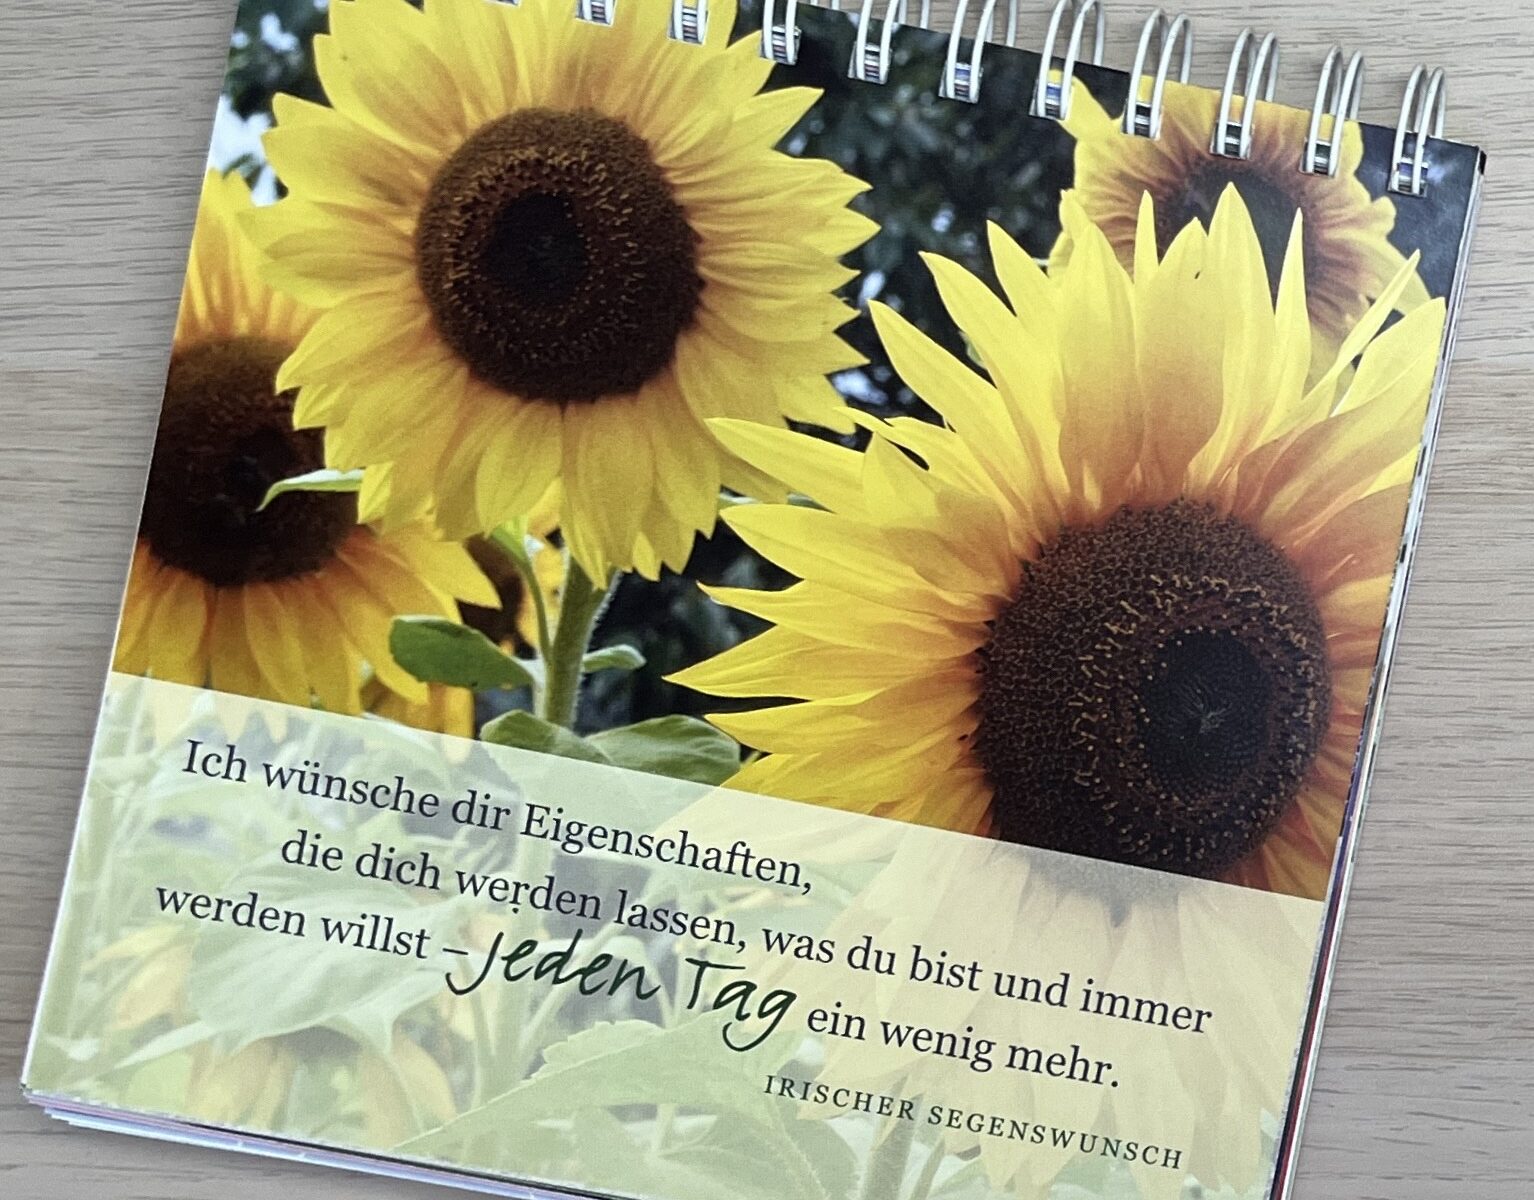 Ich wünsche dir Eigenschaften,
die dich werden lassen, was du bist und immer
werden willst – jeden Tag ein wenig mehr.
IRISCHER SEGENSWUNSCH